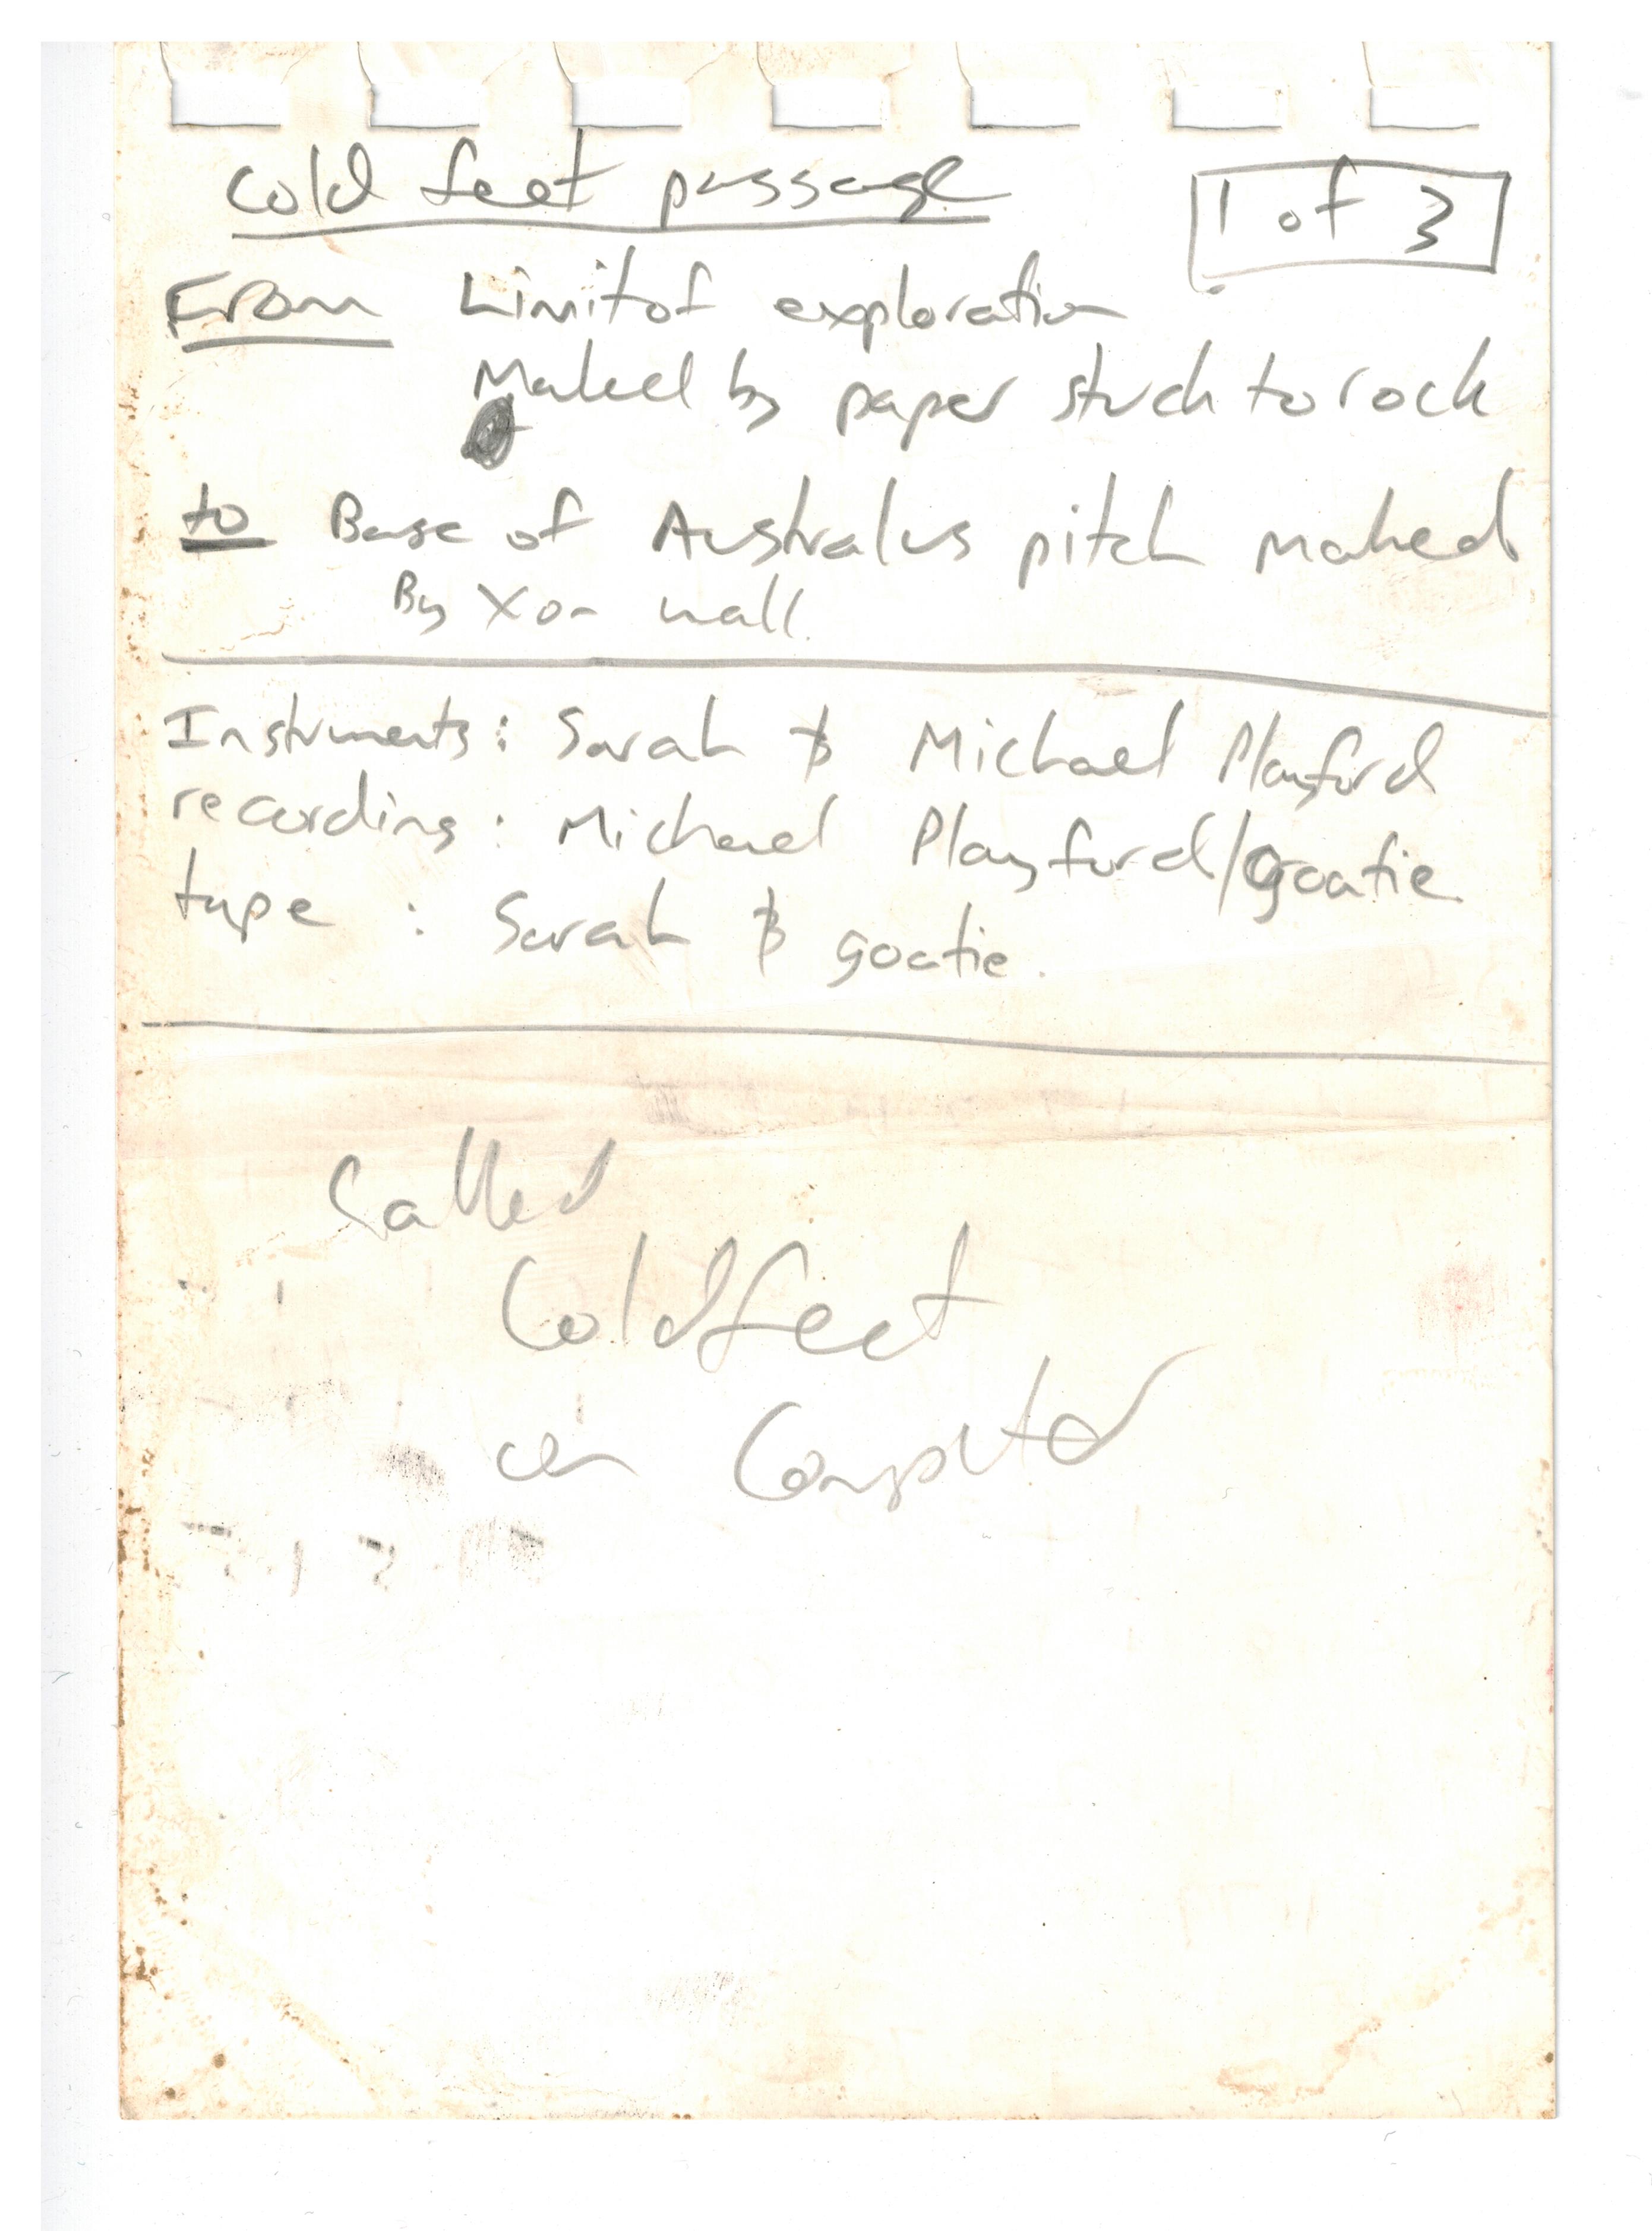 Cold feet passage
1 of 3
From Limit of exploration
Maked by paper stuck to rock
to Base of Australus pitch maked
By X on wall.
Instruments: Sarah & Michael Playford
recording: Michael Playford/goatie
tape : Sarah & goatie.
Called
Coldfeet
on Computer